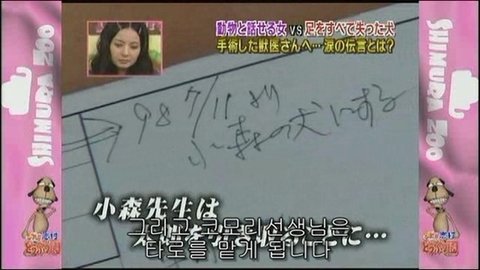 動物と話せる女 vs 足をすべて失った犬
手術した獣医さんへ… 涙の伝言とは?
SHIMURA ZOO
98 7/11 より
小森の犬にする
小森先生は
그리고 코모리선생님은
타로를 맡게 됩니다
SHIMURA ZOO